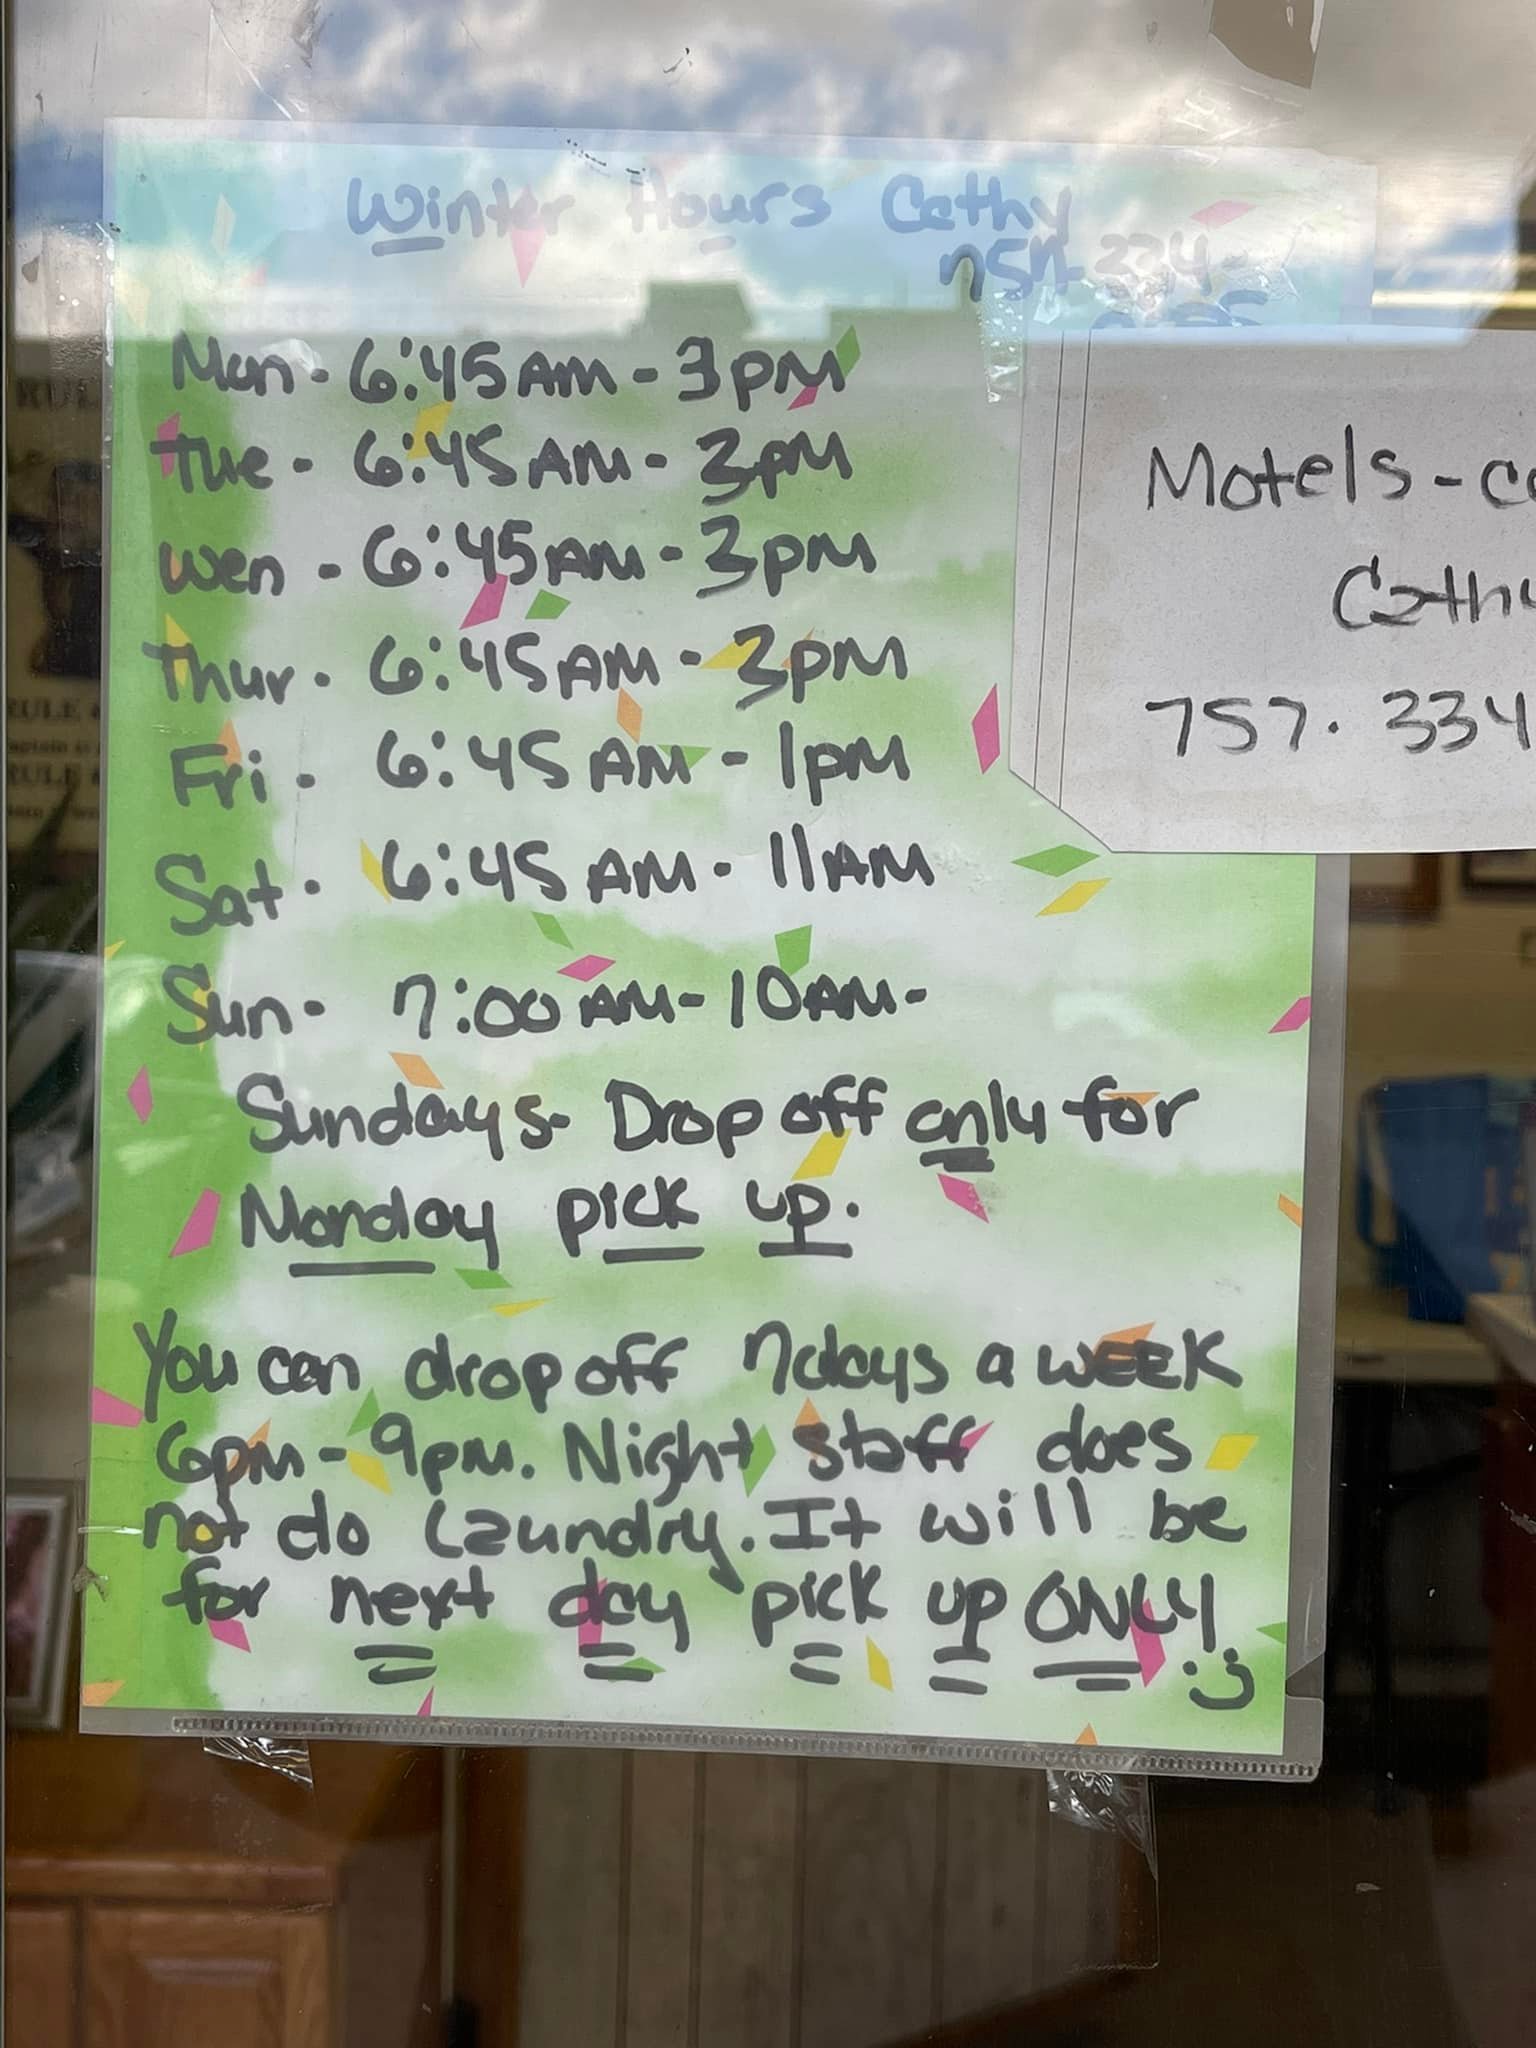 Winter Hours Cathy
Mon - 6:45 AM - 3pm
Tue - 6:45 AM - 3pm
Wen - 6:45 AM - 3pm
Thur - 6:45 AM - 3pm
Fri - 6:45 AM - 1pm
Sat - 6:45 AM - 11AM
Sun - 7:00 AM - 10AM -
Sundays - Drop off only for
Monday pick up.
You can drop off 7days a WEEK
6pm - 9pm. Night staff does
not do Laundry. It will be
for next day pick up ONLY :)
Motels -
Cathy
757. 334
RULE
RULE